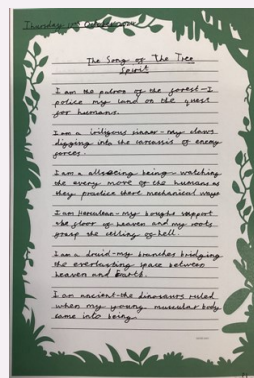 The Song of The Tree
Spirit
I am the patron of the forest-I
police my land on the quest
for humans.
I am a religious sinner-my claws
digging into the carcass of enemy
forces.
I am a allseeing being-watching
the every move of the humans as
they practice there mechanical ways
I am Herculean-my boughs support
the floor of heaven and my roots
grasp the ceiling of hell.
I am a druid-my branches bridging
the everlasting space between
heaven and Earth.
I am ancient-the dinosaurs ruled
when my young muscular body
came into being.